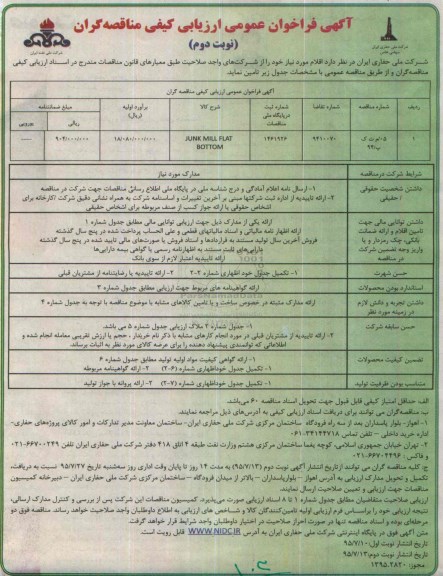 آگهی فراخوان عمومی ارزیابی کیفی مناقصه‌گران
(نوبت دوم)
شرکت ملی حفاری ایران در نظر دارد اقلام مورد نیاز خود را از شرکت‌های واجد صلاحیت طبق معیارهای قانون مناقصات مندرج در اسناد ارزیابی کیفی
مناقصه‌گران و از طریق مناقصه عمومی با مشخصات جدول زیر تامین نماید.
آگهی فراخوان عمومی ارزیابی کیفی مناقصه گران
ردیف شماره مناقصه شماره تقاضا شماره ثبت درپایگاه ملی مناقصات شرح کالا برآورد اولیه (ریال) مبلغ ضمانتنامه
ریالی یورویی
۱ ۹۴۱۰۰۷۰ ۱۴۶۱۹۲۶ JUNK MILL FLAT BOTTOM ۱۸/۰۸۰/۰۰۰/۰۰۰ ۹۰۴/۰۰۰/۰۰۰ ----
شرایط شرکت در مناقصه مدارک مورد نیاز
داشتن شخصیت حقوقی / حقیقی
۱- ارسال نامه اعلام آمادگی و درج شناسه ملی در پایگاه ملی اطلاع رسانی مناقصات جهت شرکت در مناقصه
۲- ارائه تاییدیه از اداره ثبت شرکتها مبنی بر آخرین تغییرات و اساسنامه شرکت به همراه نشانی دقیق شرکت /کارخانه برای
اشخاص حقوقی یا ارائه جواز کسب از صنف مربوطه برای اشخاص حقیقی
داشتن توانایی مالی جهت تامین اقلام و ارائه ضمانت بانکی، چک رمزدار و یا واریز وجه تضمین شرکت در مناقصه
ارائه یکی از مدارک ذیل جهت ارزیابی توانایی مالی مطابق جدول شماره ۱
ارائه اظهار نامه مالیاتی و اسناد مالیاتهای قطعی و علی الحساب پرداخت شده در پنج سال گذشته
فروش آخرین سال تولید مستند به قراردادها و اسناد فروش یا صورت‌های مالی تایید شده در پنج سال گذشته
دارایی‌های ثابت مستند به اظهارنامه رسمی یا گواهی بیمه دارایی‌ها
ارائه تاییدیه اعتبار لازم از سوی بانک
حسن شهرت ۱- تکمیل جدول خود اظهاری شماره ۲-۲ ۲- ارائه تاییدیه یا رضایتنامه از مشتریان قبلی
استاندارد بودن محصولات ارائه گواهینامه های مربوط جهت ارزیابی مطابق جدول شماره ۳
داشتن تجربه و دانش لازم در زمینه مورد نظر ارائه مدارک مثبته در خصوص ساخت و یا تامین کالاهای مشابه یا موضوع مناقصه با توجه به جدول شماره ۴
حسن سابقه شرکت
۲- ارائه تاییدیه از مشتریان قبلی در مورد انجام کارهای مشابه با ذکر نام خریدار، حجم یا ارزش تقریبی معامله انجام شده و
اطلاعاتی که توانمندی پیشنهاد دهنده را برای عرضه کالای مورد نظر به اثبات برساند.
تضمین کیفیت محصولات ۱- ارائه گواهی کیفیت مواد اولیه تولید مطابق جدول شماره ۶
۱- تکمیل جدول خوداظهاری شماره (۲-۶) ۲- ارائه گواهینامه مربوطه
متناسب بودن ظرفیت تولید ۱- تکمیل جدول خوداظهاری شماره (۲-۷) ۲- ارائه پروانه یا جواز تولید
الف: حداقل امتیاز کیفی قابل قبول جهت تحویل اسناد مناقصه ۶۰ می‌باشد.
ب: مناقصه‌گران می توانند برای دریافت اسناد ارزیابی کیفی به آدرس‌های ذیل مراجعه نمایند.
۱- اهواز- بلوار پاسداران بعد از سه راه فرودگاه ساختمان مرکزی شرکت ملی حفاری ایران- ساختمان معاونت مدیر تدارکات و امور کالای پروژه‌های حفاری-
اداره خرید داخلی – تلفن تماس
۲- تهران خیابان جمهوری اسلامی، کوچه یغما ساختمان مرکزی هشتم وزارت نفت طبقه ۴ اتاق ۴۱۸ دفتر شرکت ملی حفاری ایران تلفن ۶۶۷۰۰۲۴۹-۰۲۱
و فاکس: ۶۶۷۰۴۴۹۶-۰۲۱
ج: کلیه مناقصه گران می توانند از تاریخ انتشار آگهی نوبت دوم (۹۵/۷/۱۳) به مدت ۱۴ روز تا پایان وقت اداری روز سه‌شنبه تاریخ ۹۵/۷/۲۷ نسبت به دریافت،
تکمیل و تحویل مدارک ارزیابی به آدرس اهواز – بلوارپاسداران – بالاتر از میدان فرودگاه – ساختمان مرکزی شرکت ملی حفاری ایران – دبیرخانه کمیسیون
مناقصات جهت ارزیابی و تعیین صلاحیت ارسال نمایند.
ارزیابی صلاحیت متقاضیان مطابق جدول شماره ۱ تا ۸ اسناد ارزیابی صورت می‌پذیرد. کمیسیون مناقصات این شرکت پس از بررسی و کنترل مدارک ارسالی،
نتیجه ارزیابی خود را براساس فرم ارزیابی اولیه تامین‌کنندگان کالا و شاخص های ارزیابی به اطلاع داوطلبان واجد صلاحیت خواهد رساند. مناقصه فوق دو
مرحله‌ای بوده و اسناد مناقصه تنها در صورت احراز صلاحیت در اختیار داوطلبان واجد شرایط قرار خواهد گرفت.
متن آگهی فوق در پایگاه اینترنتی شرکت ملی حفاری ایران به آدرس WWW.NIDC.IR قابل رویت است
تاریخ انتشار نوبت اول: ۹۵/۷/۱۰
تاریخ انتشار نوبت دوم: ۹۵/۷/۱۳
مجوز: ۱۳۹۵.۲۸۲۰